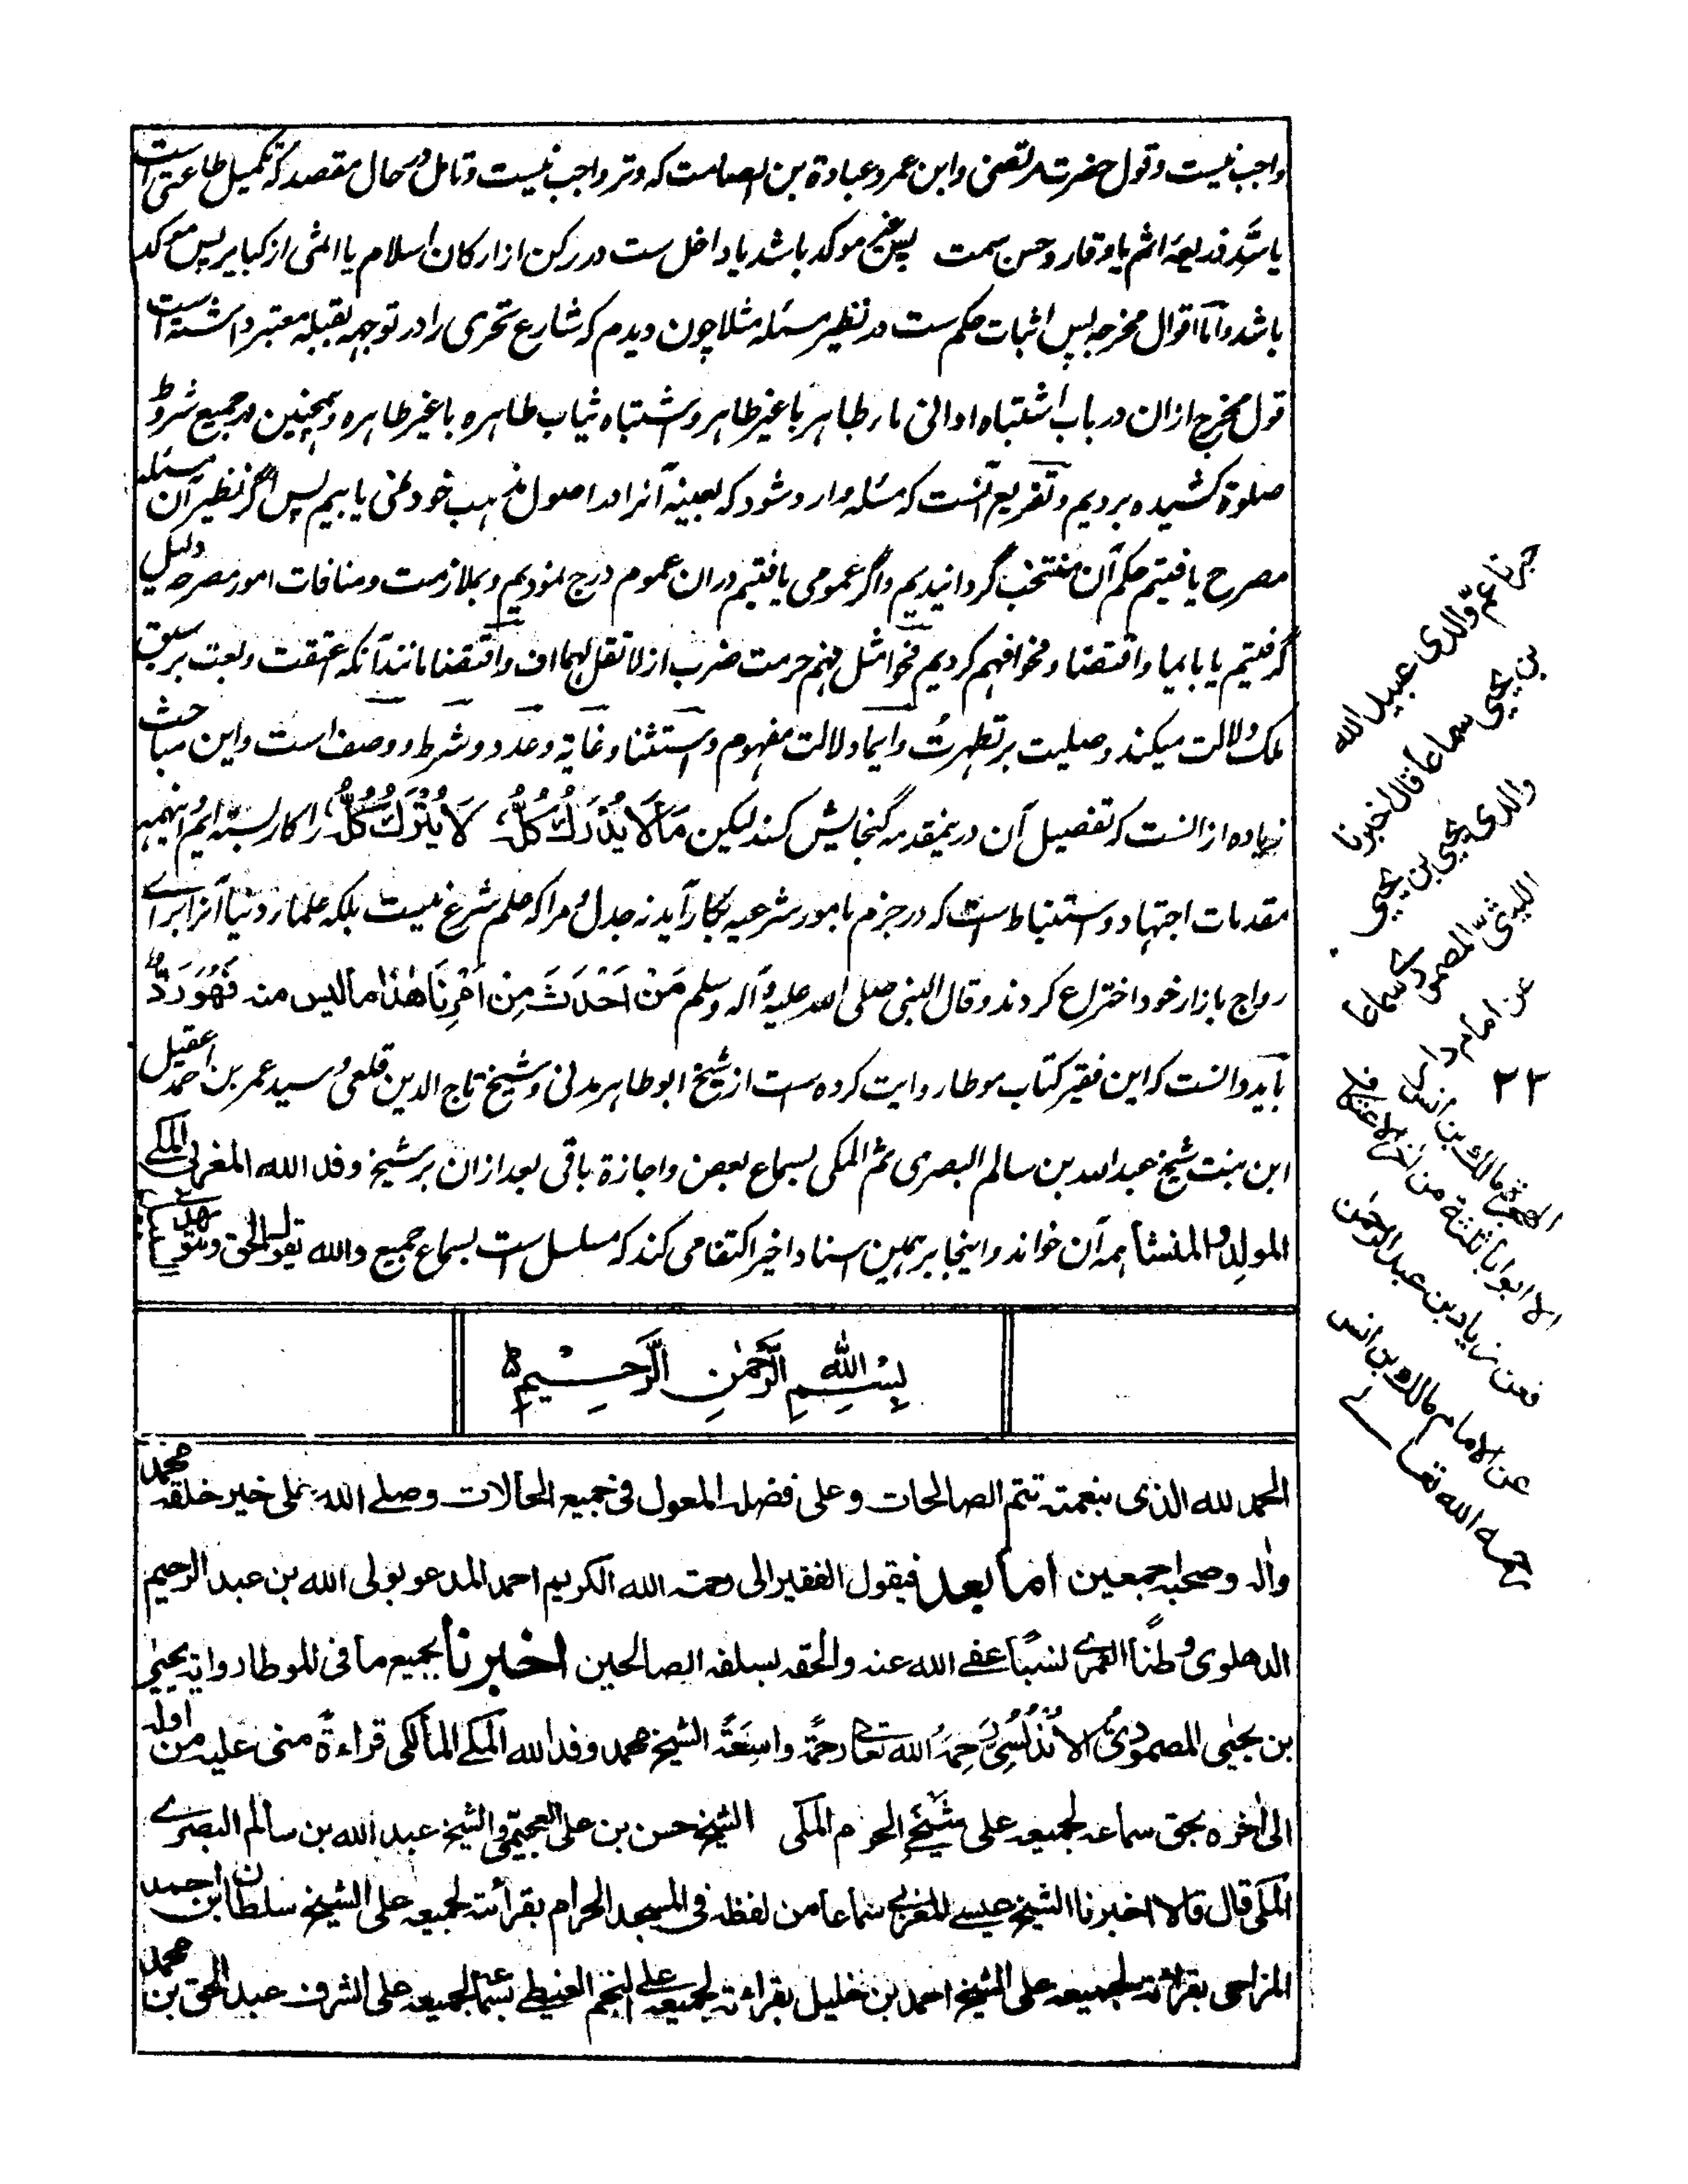 واجب نیست وقول حضرت مرتضی وابن عمر وعبادة بن الصامت که وتر واجب نیست وتامل در حال مقصد که تکمیل طاعتی است
یا سدّ ذریعهٔ اثم یا وقار وحسن سمت پس سنن موکد باشد یا داخل ست در رکن از ارکان اسلام یا اثمی از کبایر پس موکد
باشد واما اقوال مخرجه پس اثبات حکم ست در نظیر مسئله مثلا چون دیدم که شارع تحری را در توجه بقبله معتبر داشته است
قول مخرج ازان در باب اشتباه اوانی ماء طاهر با غیر طاهر واشتباه ثیاب طاهره با غیر طاهره وهمچنین در جمیع شروط
صلوة کشیده بردیم وتفریع آنست که مسئله وارد شود که بعینه آنرا در اصول مذهب خود نمی یابیم پس اگر نظیر آن مسئله
مصرح یافتیم حکم آن منتخب گردانیدیم واگر عمومی یافتیم دران عموم درج نمودیم وبملازمت ومنافات امور مصرحه دلیل
گرفتیم یا بایما واقتضا وفحوا فهم کردیم فحوا مثل فهم حرمت ضرب از لا تقل لهما اف واقتضا مانند آنکه اعتقت وبعت بر سبق
ملک دلالت میکند وصلیت بر تطهرتُ وایما دلالت مفهوم واستثنا وغایة وعدد وشرط ووصف است واین مباحث
زیاده ازانست که تفصیل آن دریمقدمه گنجایش کند لیکن مَا لَا یُدْرَكُ كُلُّهُ لَا یُتْرَكُ كُلُّهُ را کار بسته ایم اینهمه
مقدمات اجتهاد واستنباط ست که در جزم بامور شرعیه بکار آید نه جدل ومرا که علم شرع نیست بلکه علماء دنیا آنرا برای
رواج بازار خود اختراع کردند وقال النبی صلی الله علیه وآله وسلم مَنْ اَحْدَثَ مِن اَمْرِنَا هٰذَا ما لیس منه فَهُوَ رَدٌّ
باید دانست که این فقیر کتاب موطا روایت کرده ست از شیخ ابو طاهر مدنی وشیخ تاج الدین قلعی وسید عمر بن احمد عقیل
ابن بنت شیخ عبد الله بن سالم البصری ثم المکی بسماع بعض واجازة باقی بعد ازان بر شیخ وفد الله المغربی المکی
المولد والمنشأ همه آن خواند واینجا بر همین اسناد اخیر اکتفا می کند که مسلسل ست بسماع جمیع والله یقول الحق وهو یهدی السبیل
بِسْمِ اللهِ الرَّحْمٰنِ الرَّحِیْمِ
الحمد لله الذی بنعمته تتم الصالحات وعلی فضله المعول فی جمیع الحالات وصلے الله علی خیر خلقه محمد
واٰله وصحبه اجمعین اما بعد فیقول الفقیر الی رحمة الله الکریم احمد المدعو بولی الله بن عبد الرحیم
الدهلوی وطنًا العمری نسبًا عفے الله عنه والحقه بسلفه الصالحین اخبرنا بجمیع ما فی الموطا روایة یحیی
بن یحیی المصمودی الاَنْدَلُسِی رَحِمَهُ الله تعالٰی رحمةً واسِعَةً الشیخ محمد وفد الله المکے المالکی قراءةً منی علیه من اوله
الی اٰخره بحق سماعه لجمیعه علی شَیْخَیِ الحرم المکی الشیخ حسن بن علی العجیمی والشیخ عبد الله بن سالم البصرے
المکی قال قالا اخبرنا الشیخ عیسے المغربی سماعا من لفظه فی المسجد الحرام بقراءته لجمیعه علی الشیخ سلطان بن احمد
المزاحی بقراءته لجمیعه علی الشیخ احمد بن خلیل بقراءته لجمیعه علی النجم الغیطے بسماعه لجمیعه علی الشرف عبد الحق بن محمد
خبرنا عم والدی عبید الله
بن یحیی سماعا قال اخبرنا
والدی یحیی بن یحیی
اللیثی المصمودے سماعا
عن امام دار
الهجرة مالك بن انس
الا ابوابا ثلثة من اٰخر الاعتکاف
فعن زیاد بن عبد الرحمٰن
عن الامام مالك بن انس
رحمه الله تعالے
۲۲